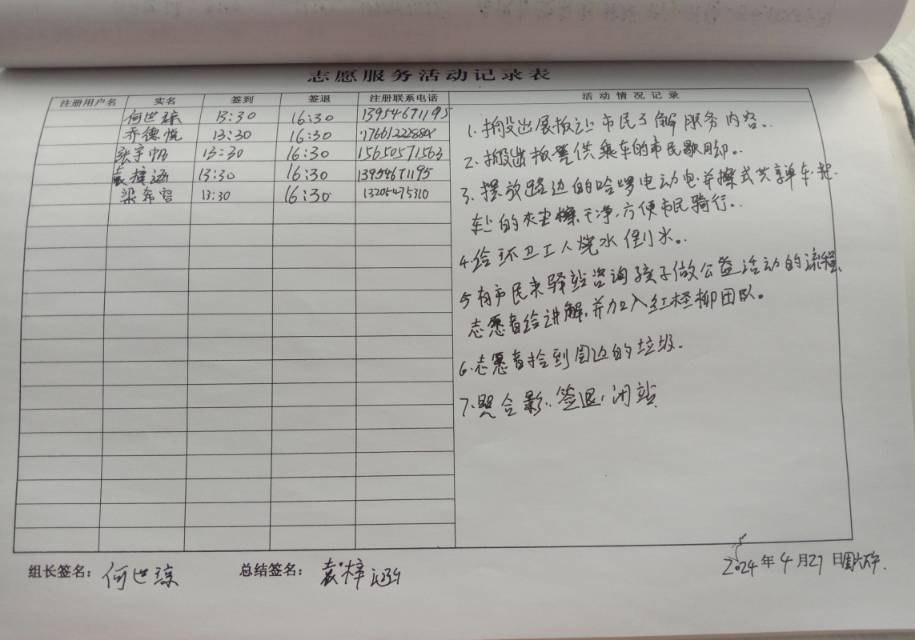 志愿服务活动记录表
注册用户名 实名 签到 签退 注册联系电话 活动情况记录
何世琼 13:30 16:30 13954671195
乔德悦 13:30 16:30
张宇 13:30 16:30 15650571563
袁梓涵 13:30 16:30 13954671195
梁 13:30 16:30 13205475310
1.搬出展板让市民了解服务内容。
2.搬出板凳供乘车的市民歇脚。
3.摆放路边的哈啰电动电并擦拭共享单车
车上的灰尘擦干净,方便市民骑行。
4.给环卫工人烧水倒水。
5有市民来驿站咨询孩子做公益活动的流程,
志愿者给讲解,并加入红柽柳团队。
6.志愿者捡到周边的垃圾.
7.照合影、签退、闭站
组长签名: 何世琼 总结签名: 袁梓涵 2024年4月27日